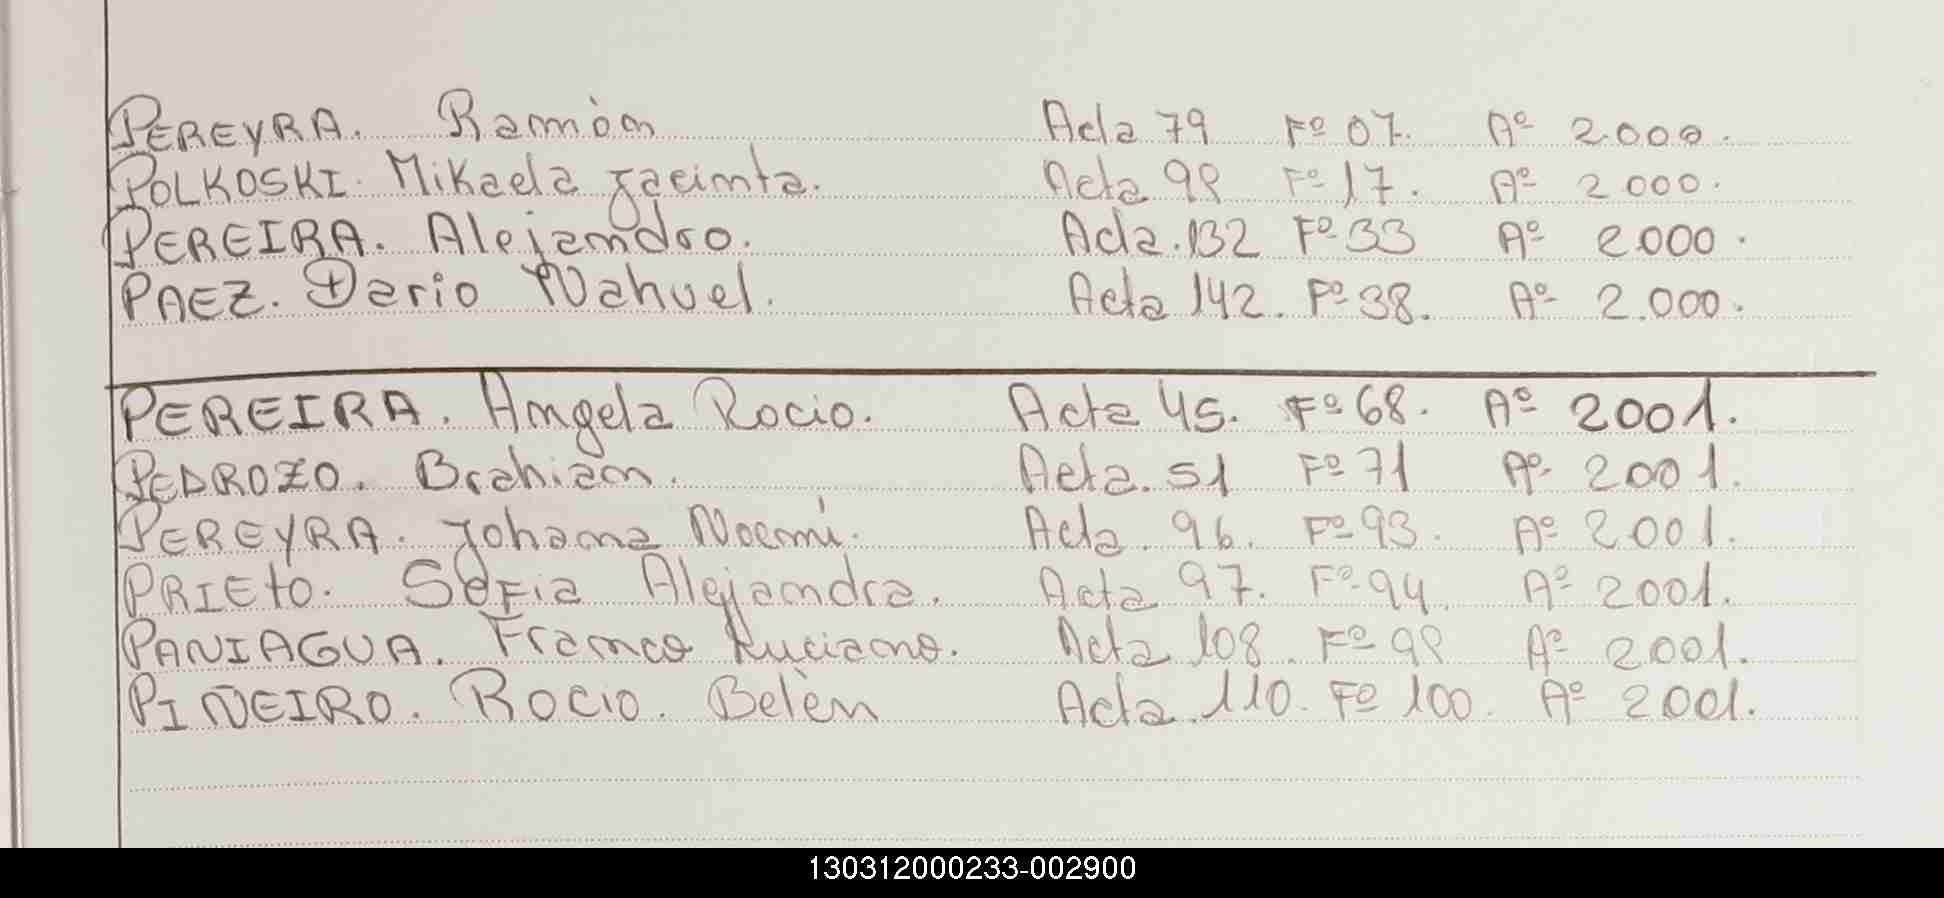 PEREYRA. Ramòn Acta 79 Fº 07. Aº 2.000.
POLKOSKI. Mikaela Jacinta. Acta 98 Fº 17. Aº 2000.
PEREIRA. Alejandro. Acta. 132 Fº 33 Aº 2000.
PAEZ. Dario Nahuel. Acta 142. Fº 38. Aº 2.000.
PEREIRA. Angela Rocio. Acta 45. Fº 68. Aº 2001.
PEDROZO. Brahian. Acta. 51 Fº 71 Aº 2001.
PEREYRA. Johana Noemí. Acta. 96. Fº 93. Aº 2001.
PRIETO. Sofia Alejandra. Acta 97. Fº 94. Aº 2001.
PANIAGUA. Franco Luciano. Acta 108. Fº 98 Aº 2001.
PIÑEIRO. Rocio. Belèn Acta. 110. Fº 100. Aº 2001.
130312000233-002900